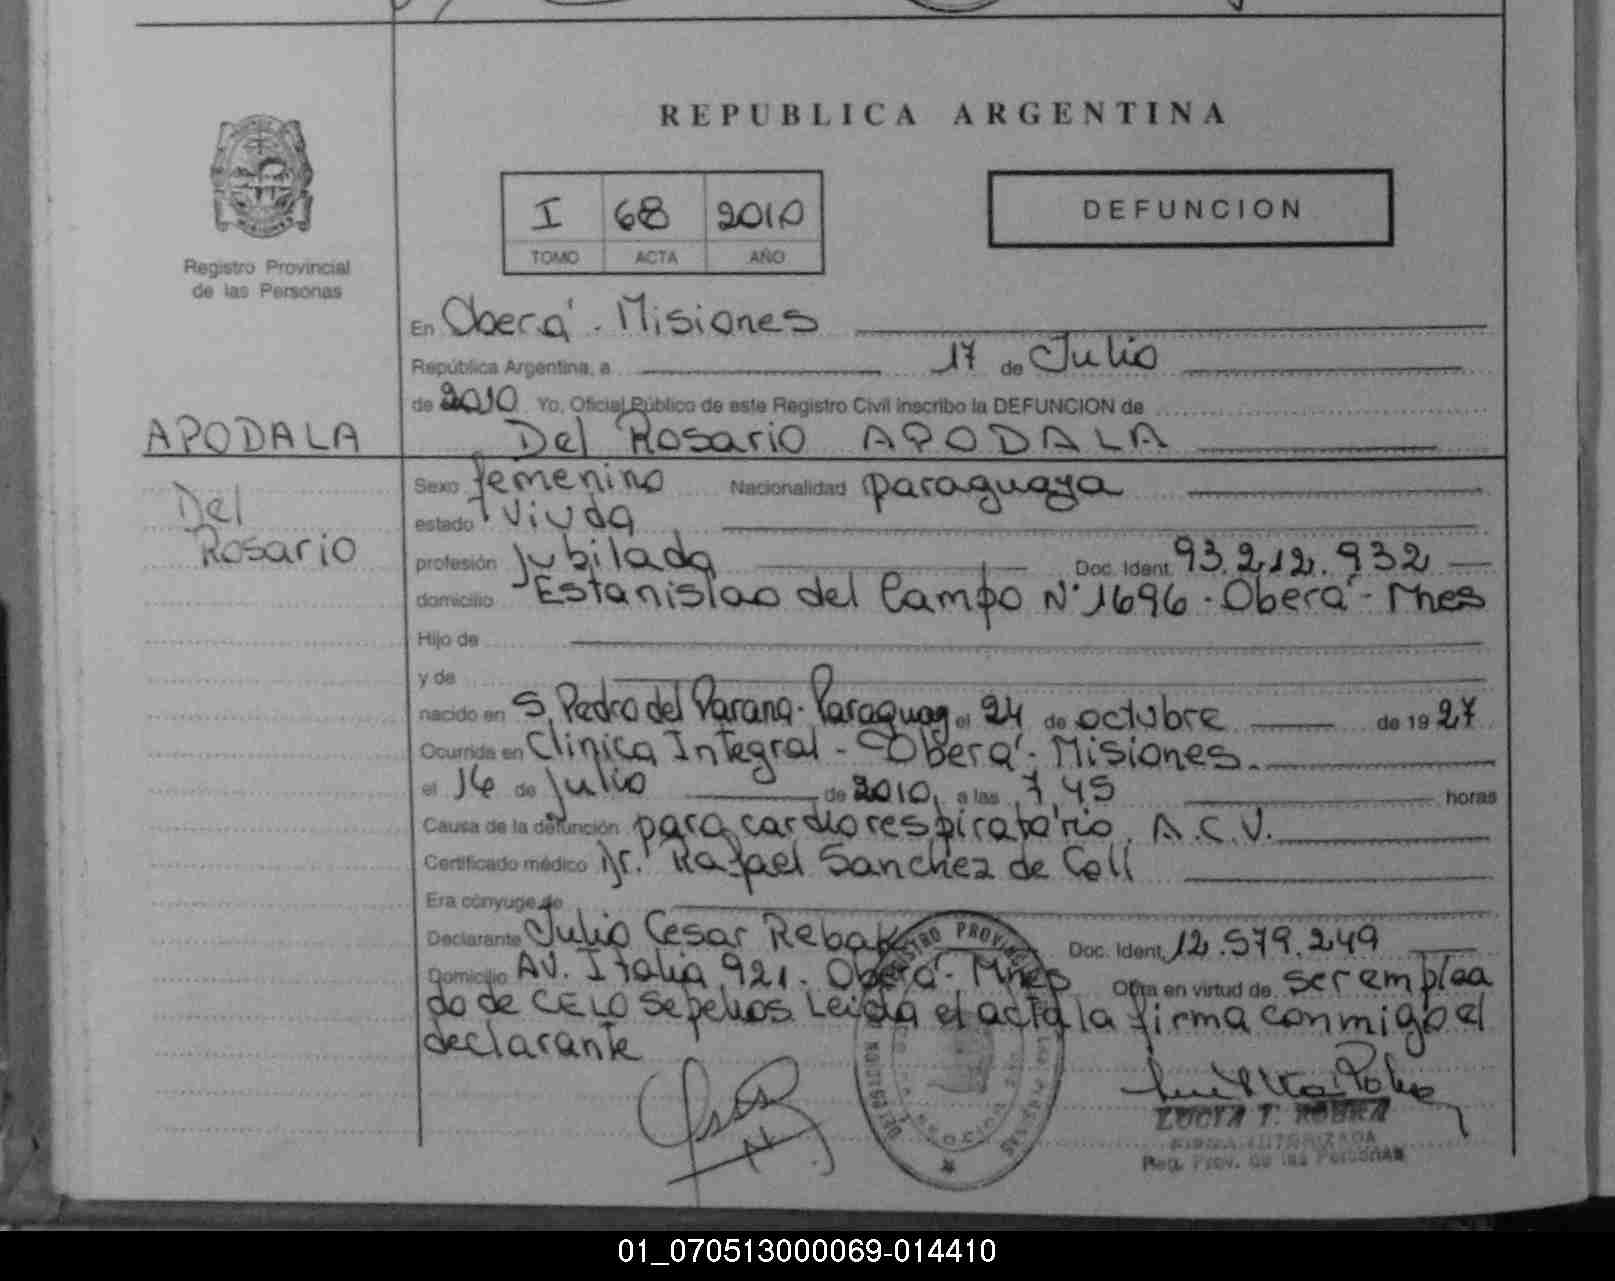 REPUBLICA ARGENTINA
I 68 2010
TOMO ACTA AÑO
DEFUNCION
Registro Provincial
de las Personas
En Oberá - Misiones
República Argentina, a 17 de Julio
de 2010 Yo, Oficial Público de este Registro Civil inscribo la DEFUNCION de
APODALA
Del Rosario APODALA
Del
Rosario
Sexo femenino Nacionalidad paraguaya
estado Viuda
profesión Jubilada Doc. Ident. 93.212.932
domicilio Estanislao del Campo Nº 1696 - Oberá - Mnes
Hijo de
y de
nacido en S. Pedro del Parana - Paraguay el 24 de octubre de 1927
Ocurrida en Clinica Integral - Oberá - Misiones
el 16 de Julio de 2010, a las 7,45 horas
Causa de la defunción paro cardiorespiratório, A.C.V.
Certificado médico Dr. Rafael Sanchez de Coll
Era cónyuge de
Declarante Julio Cesar Rebak Doc. Ident. 12.579.249
Domicilio AV. Italia 921 - Oberá - Mnes Obra en virtud de ser emplea
do de CELO Sepelios. Leída el acta la firma conmigo el
declarante
LUCIA T.
FIRMA AUTORIZADA
Reg. Prov. de las Personas
01_070513000069-014410